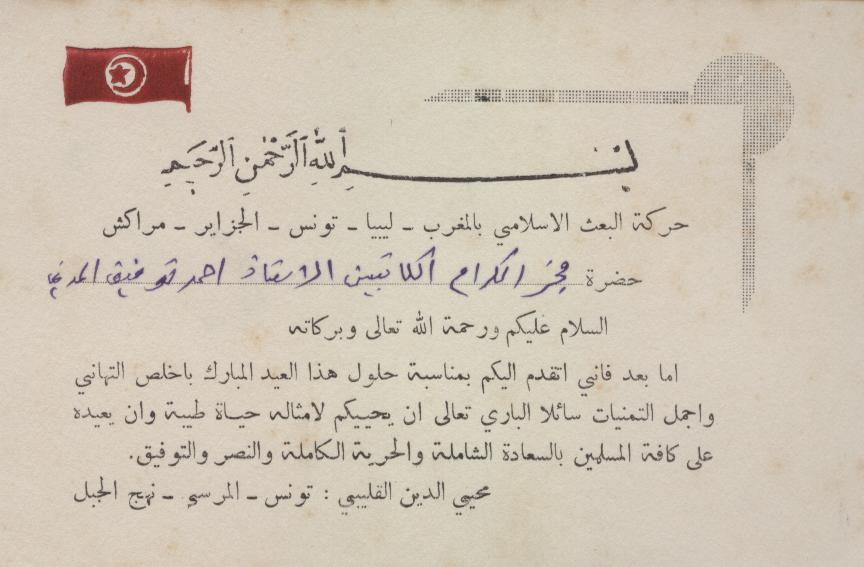 بِسْمِ اللهِ الرَّحْمٰنِ الرَّحِيمِ
حركة البعث الاسلامي بالمغرب - ليبيا - تونس - الجزاير - مراكش
حضرة فخر الكرام الكاتبين الاستاذ احمد توفيق المدني
السلام عليكم ورحمة الله تعالى وبركاته
اما بعد فاني اتقدم اليكم بمناسبة حلول هذا العيد المبارك باخلص التهاني
واجمل التمنيات سائلا الباري تعالى ان يحييكم لامثاله حياة طيبة وان يعيده
على كافة المسلمين بالسعادة الشاملة والحرية الكاملة والنصر والتوفيق.
محيي الدين القليبي : تونس - المرسى - نهج الجبل